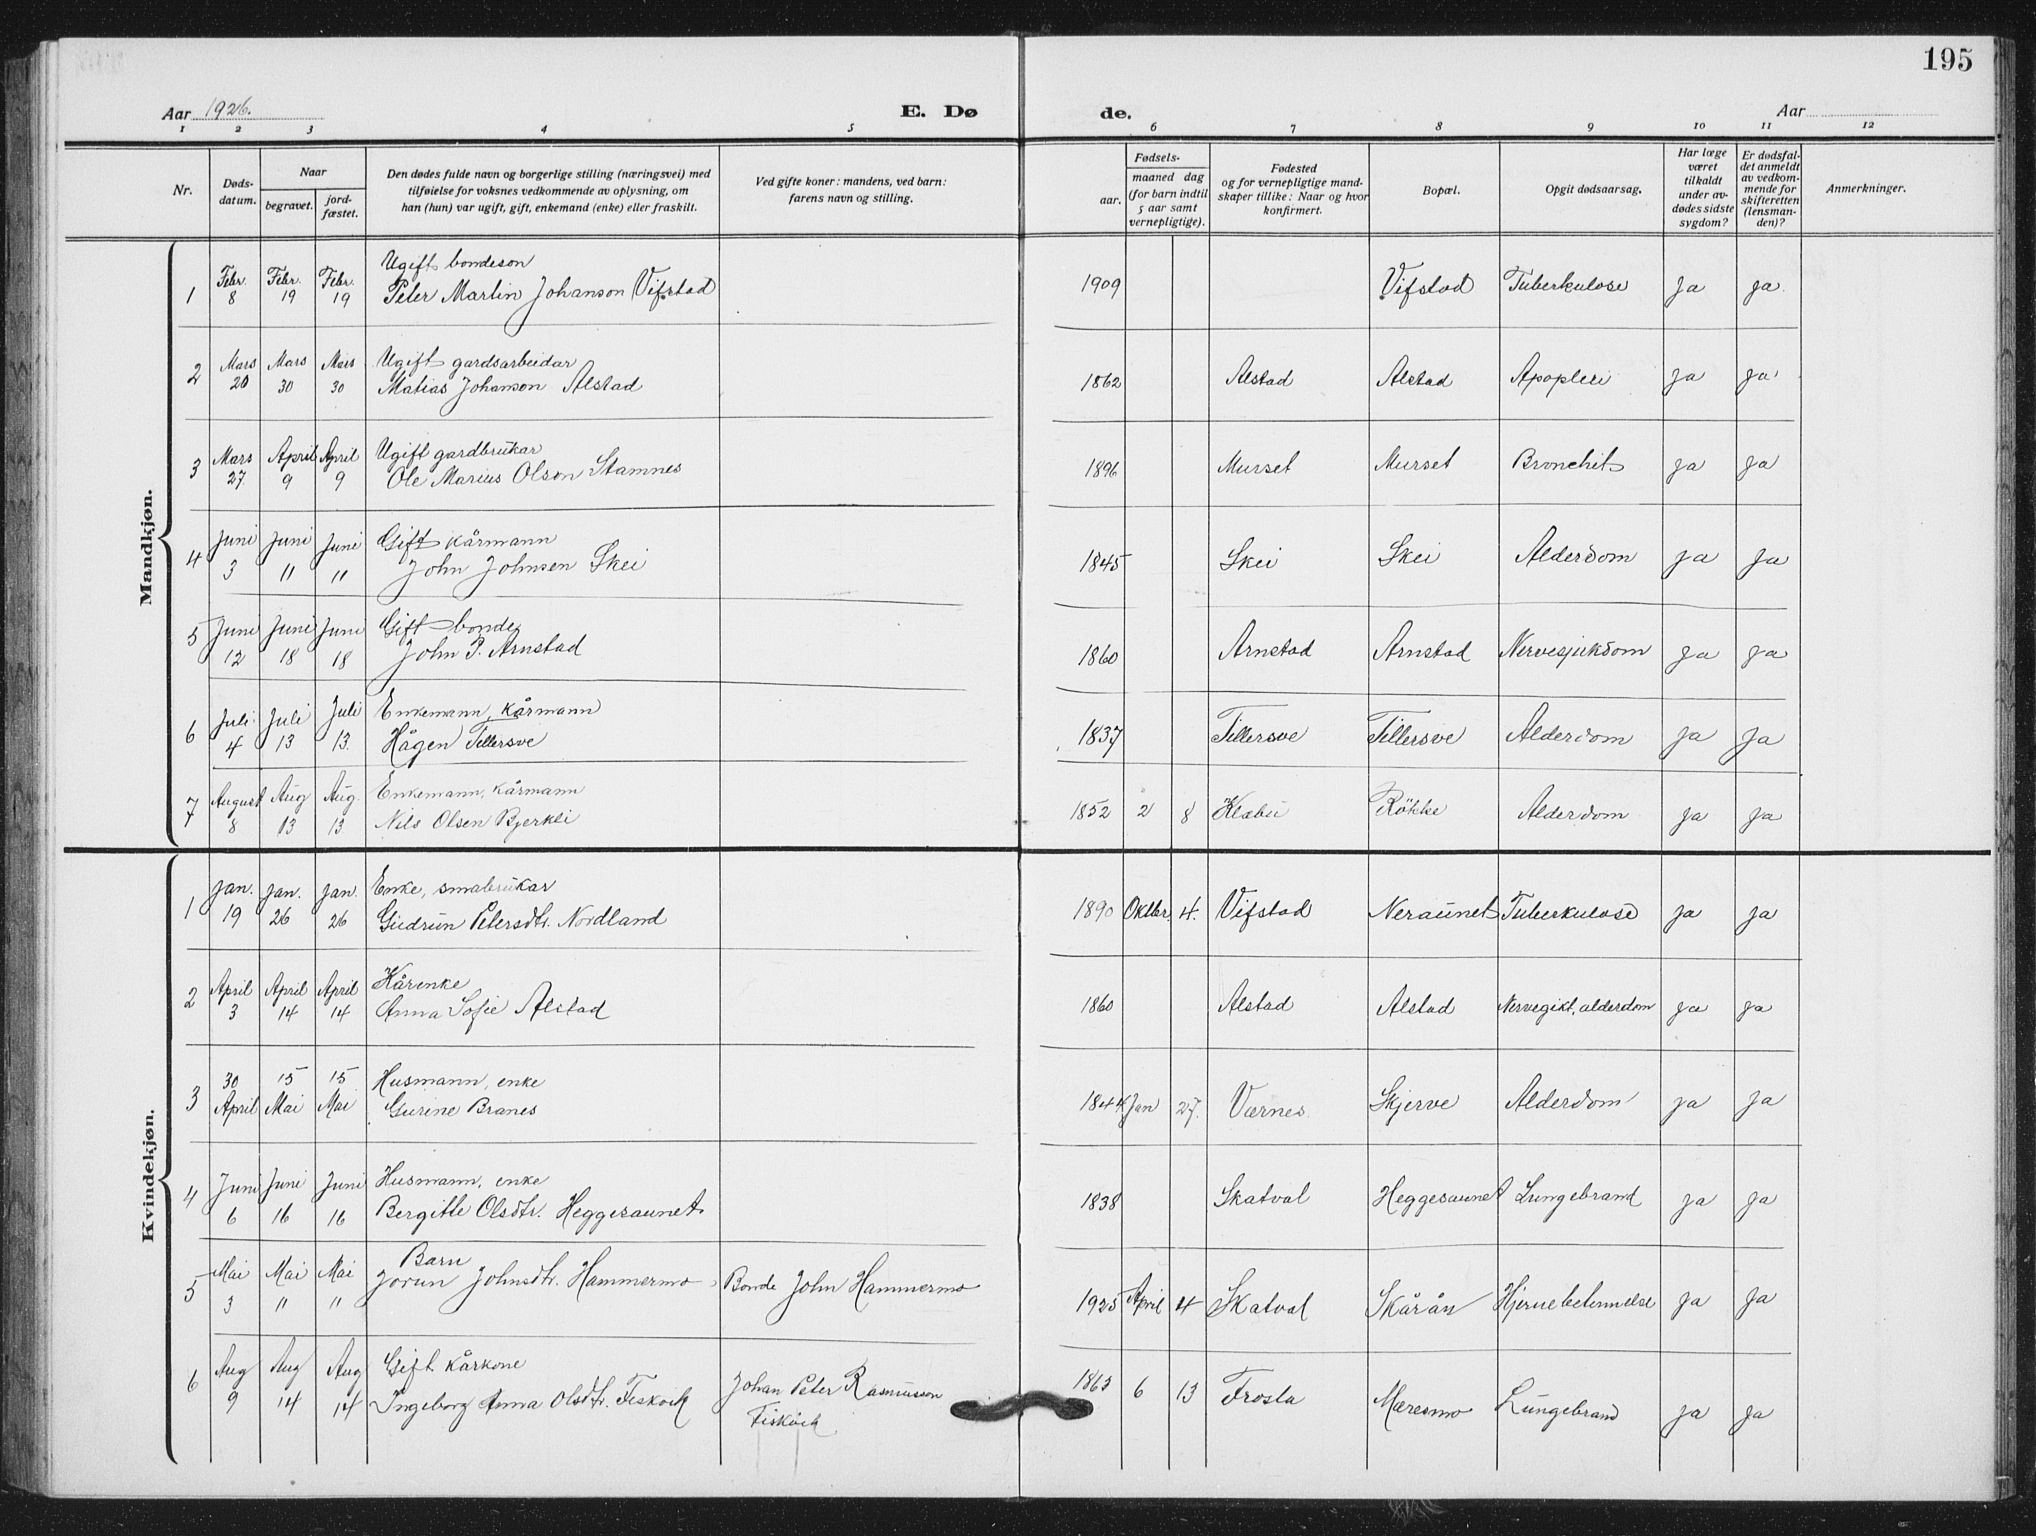 195
Aar 1926.
E. Dø
de.
Aar
1 2 3 4 5 6 7 8 9 10 11 12
Nr.
Døds-
datum.
Naar
begravet.
jord-
fæstet.
Den dødes fulde navn og borgerlige stilling (næringsvei) med
tilføielse for voksnes vedkommende av oplysning, om
han (hun) var ugift, gift, enkemand (enke) eller fraskilt.
Ved gifte koner: mandens, ved barn:
farens navn og stilling.
Fødsels-
aar.
maaned dag
(for barn indtil
5 aar samt
vernepligtige).
Fødested
og for vernepligtige mand-
skaper tillike: Naar og hvor
konfirmert.
Bopæl.
Opgit dødsaarsag.
Har læge
været
tilkaldt
under av-
dødes sidste
sygdom?
Er dødsfal-
det anmeldt
av vedkom-
mende for
skifteretten
(lensman-
den)?
Anmerkninger.
Mandkjøn.
Febr. Febr. Febr. Ugift bondeson
1 8 19 19 Peter Martin Johanson Vifstad 1909 Vifstad Tuberkulose Ja Ja.
Mars Mars Mars Ugift gardsarbeidar
2 20 30 30 Matias Johanson Alstad 1862 Alstad Alstad Apopleri Ja Ja
Mars April April Ugift gardbrukar
3 27 9 9 Ole Marius Olson Stamnes 1896 Murset Murset Bronchit Ja Ja
Juni Juni Juni Gift kårmann
4 3 11 11 John Johnsen Skei 1845 Skei Skei Alderdom Ja Ja
Juni Juni Juni Gift bonde
5 12 18 18 John P. Arnstad 1860 Arnstad Arnstad Nervesjukdom Ja Ja
Juli Juli Juli Enkemann, kårmann
6 4 13 13. Hågen Tillersve 1837 Tillersve Tillersve Alderdom Ja Ja
August Aug Aug. Enkemann, kårmann
7 8 13 13 Nils Olsen Bjerkli 1852 2 8 Klæbu Røkke Alderdom Ja Ja
Kvindekjøn.
Jan. Jan. Jan. Enke, smabrukar
1 19 26 26 Gudrun Petersdtr. Nordland 1890 Oktbr. 4. Vifstad Neraunet Tuberkulose Ja Ja
April April April Kårenke
2 3 14 14 Anna Sofie Alstad 1860 Alstad Alstad Nervegikt, alderdom Ja Ja
30 15 15 Husmann, enke
3 April Mai Mai Gurine Branes 1844 Jan 27. Værnes Skjerve Alderdom Ja Ja
Juni Juni Juni Husmann, enke
4 6 16 16 Bergitte Olsdtr. Heggesaunet 1838 Skatval Heggesaunet Lungebrand Ja Ja
Mai Mai Mai Barn
5 3 11 11 Jorun Johnsdtr. Hammermo Bonde John Hammermo 1925 April 4 Skatval Skårån Hjernebetennelse Ja Ja
Aug Aug Aug Gift kårkone
6 9 14 14 Ingeborg Anna Olsdtr. Fiskvik Johan Peter Rasmusson 1863 6 13 Frosta Mæresmo Lungebrand Ja Ja
Fiskvik